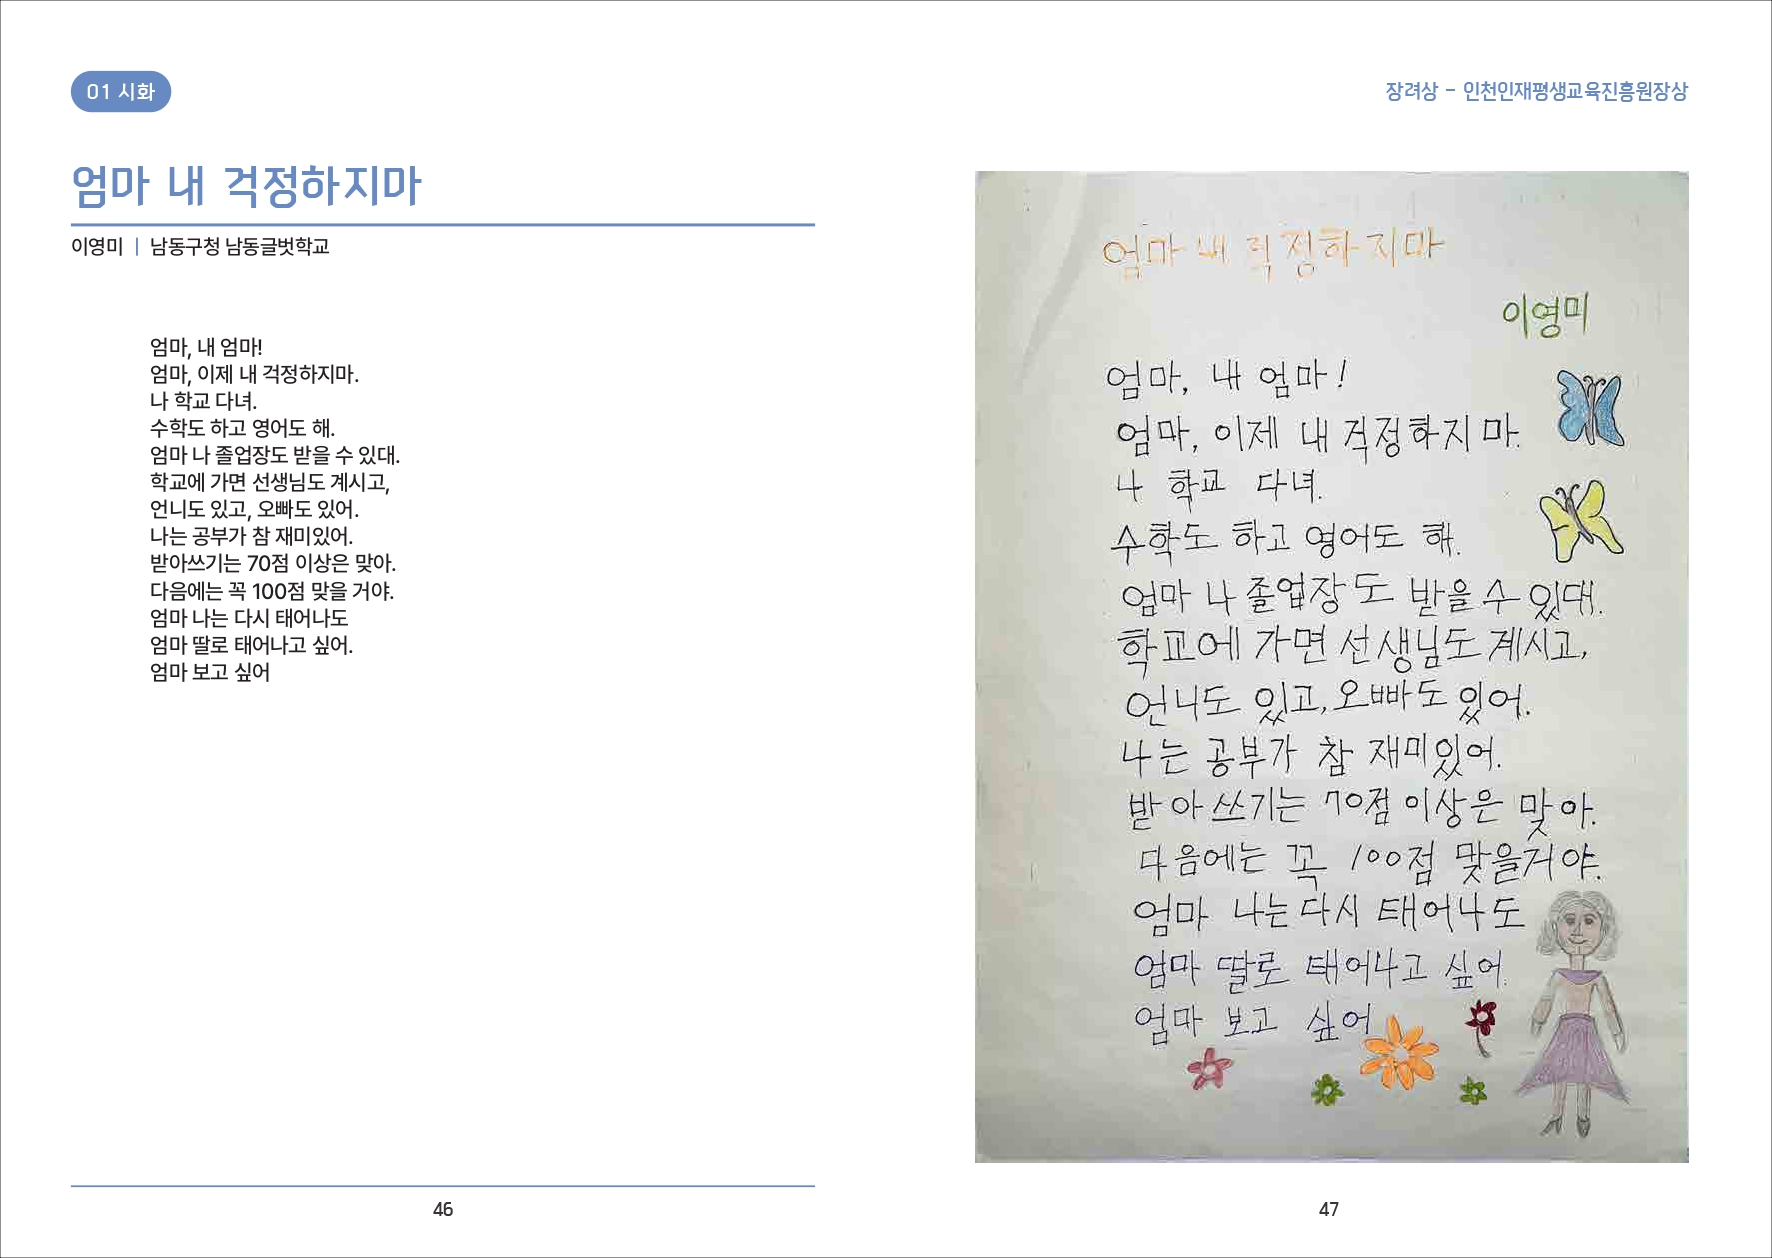 01 시화
장려상 - 인천인재평생교육진흥원장상
엄마 내 걱정하지마
이영미 | 남동구청 남동글벗학교
엄마, 내 엄마!
엄마, 이제 내 걱정하지마.
나 학교 다녀.
수학도 하고 영어도 해.
엄마 나 졸업장도 받을 수 있대.
학교에 가면 선생님도 계시고,
언니도 있고, 오빠도 있어.
나는 공부가 참 재미있어.
받아쓰기는 70점 이상은 맞아.
다음에는 꼭 100점 맞을 거야.
엄마 나는 다시 태어나도
엄마 딸로 태어나고 싶어.
엄마 보고 싶어
46
엄마 내 걱정하지마
이영미
엄마, 내 엄마!
엄마, 이제 내 걱정하지 마.
나 학교 다녀.
수학도 하고 영어도 해.
엄마 나 졸업장도 받을 수 있대.
학교에 가면 선생님도 계시고,
언니도 있고, 오빠도 있어.
나는 공부가 참 재미있어.
받아쓰기는 70점 이상은 맞아.
다음에는 꼭 100점 맞을거야.
엄마 나는 다시 태어나도
엄마 딸로 태어나고 싶어.
엄마 보고 싶어
47